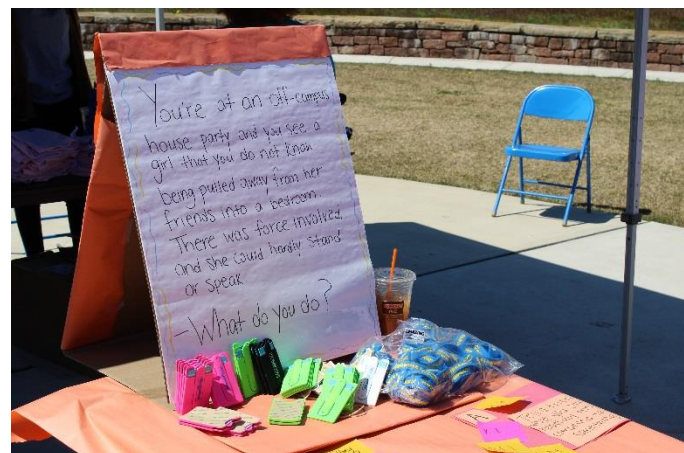 You're at an off-campus
house party and you see a
girl that you do not know
being pulled away from her
friends into a bedroom.
There was force involved,
and she could hardly stand
or speak
-What do you do?